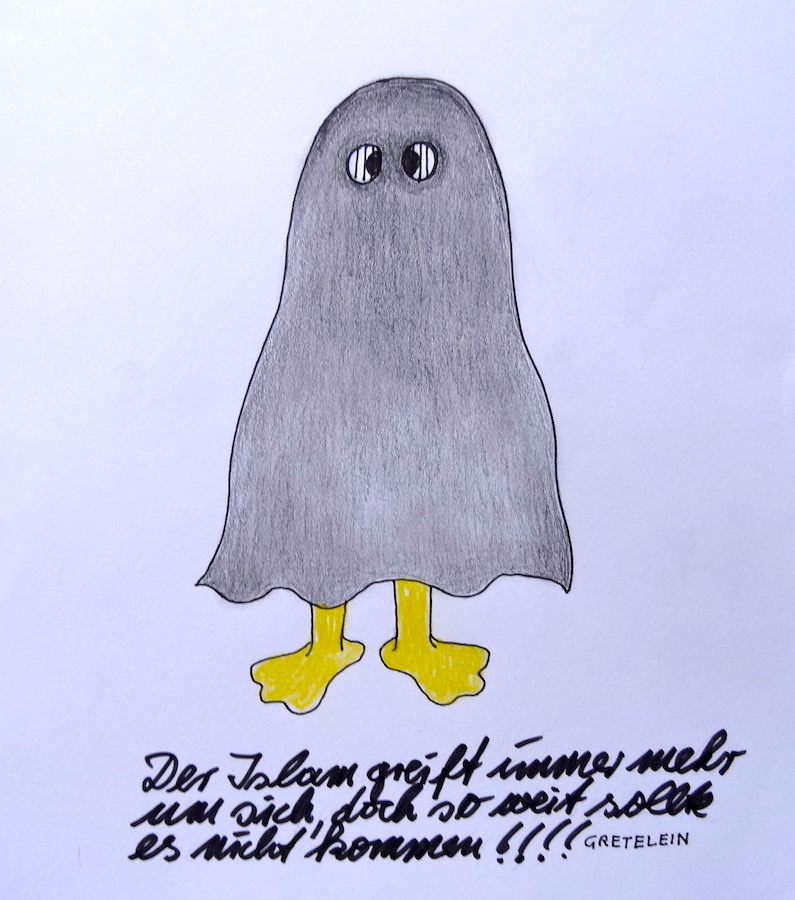 Der Islam greift immer mehr
um sich, doch so weit sollte
es nicht kommen!!!! GRETELEIN